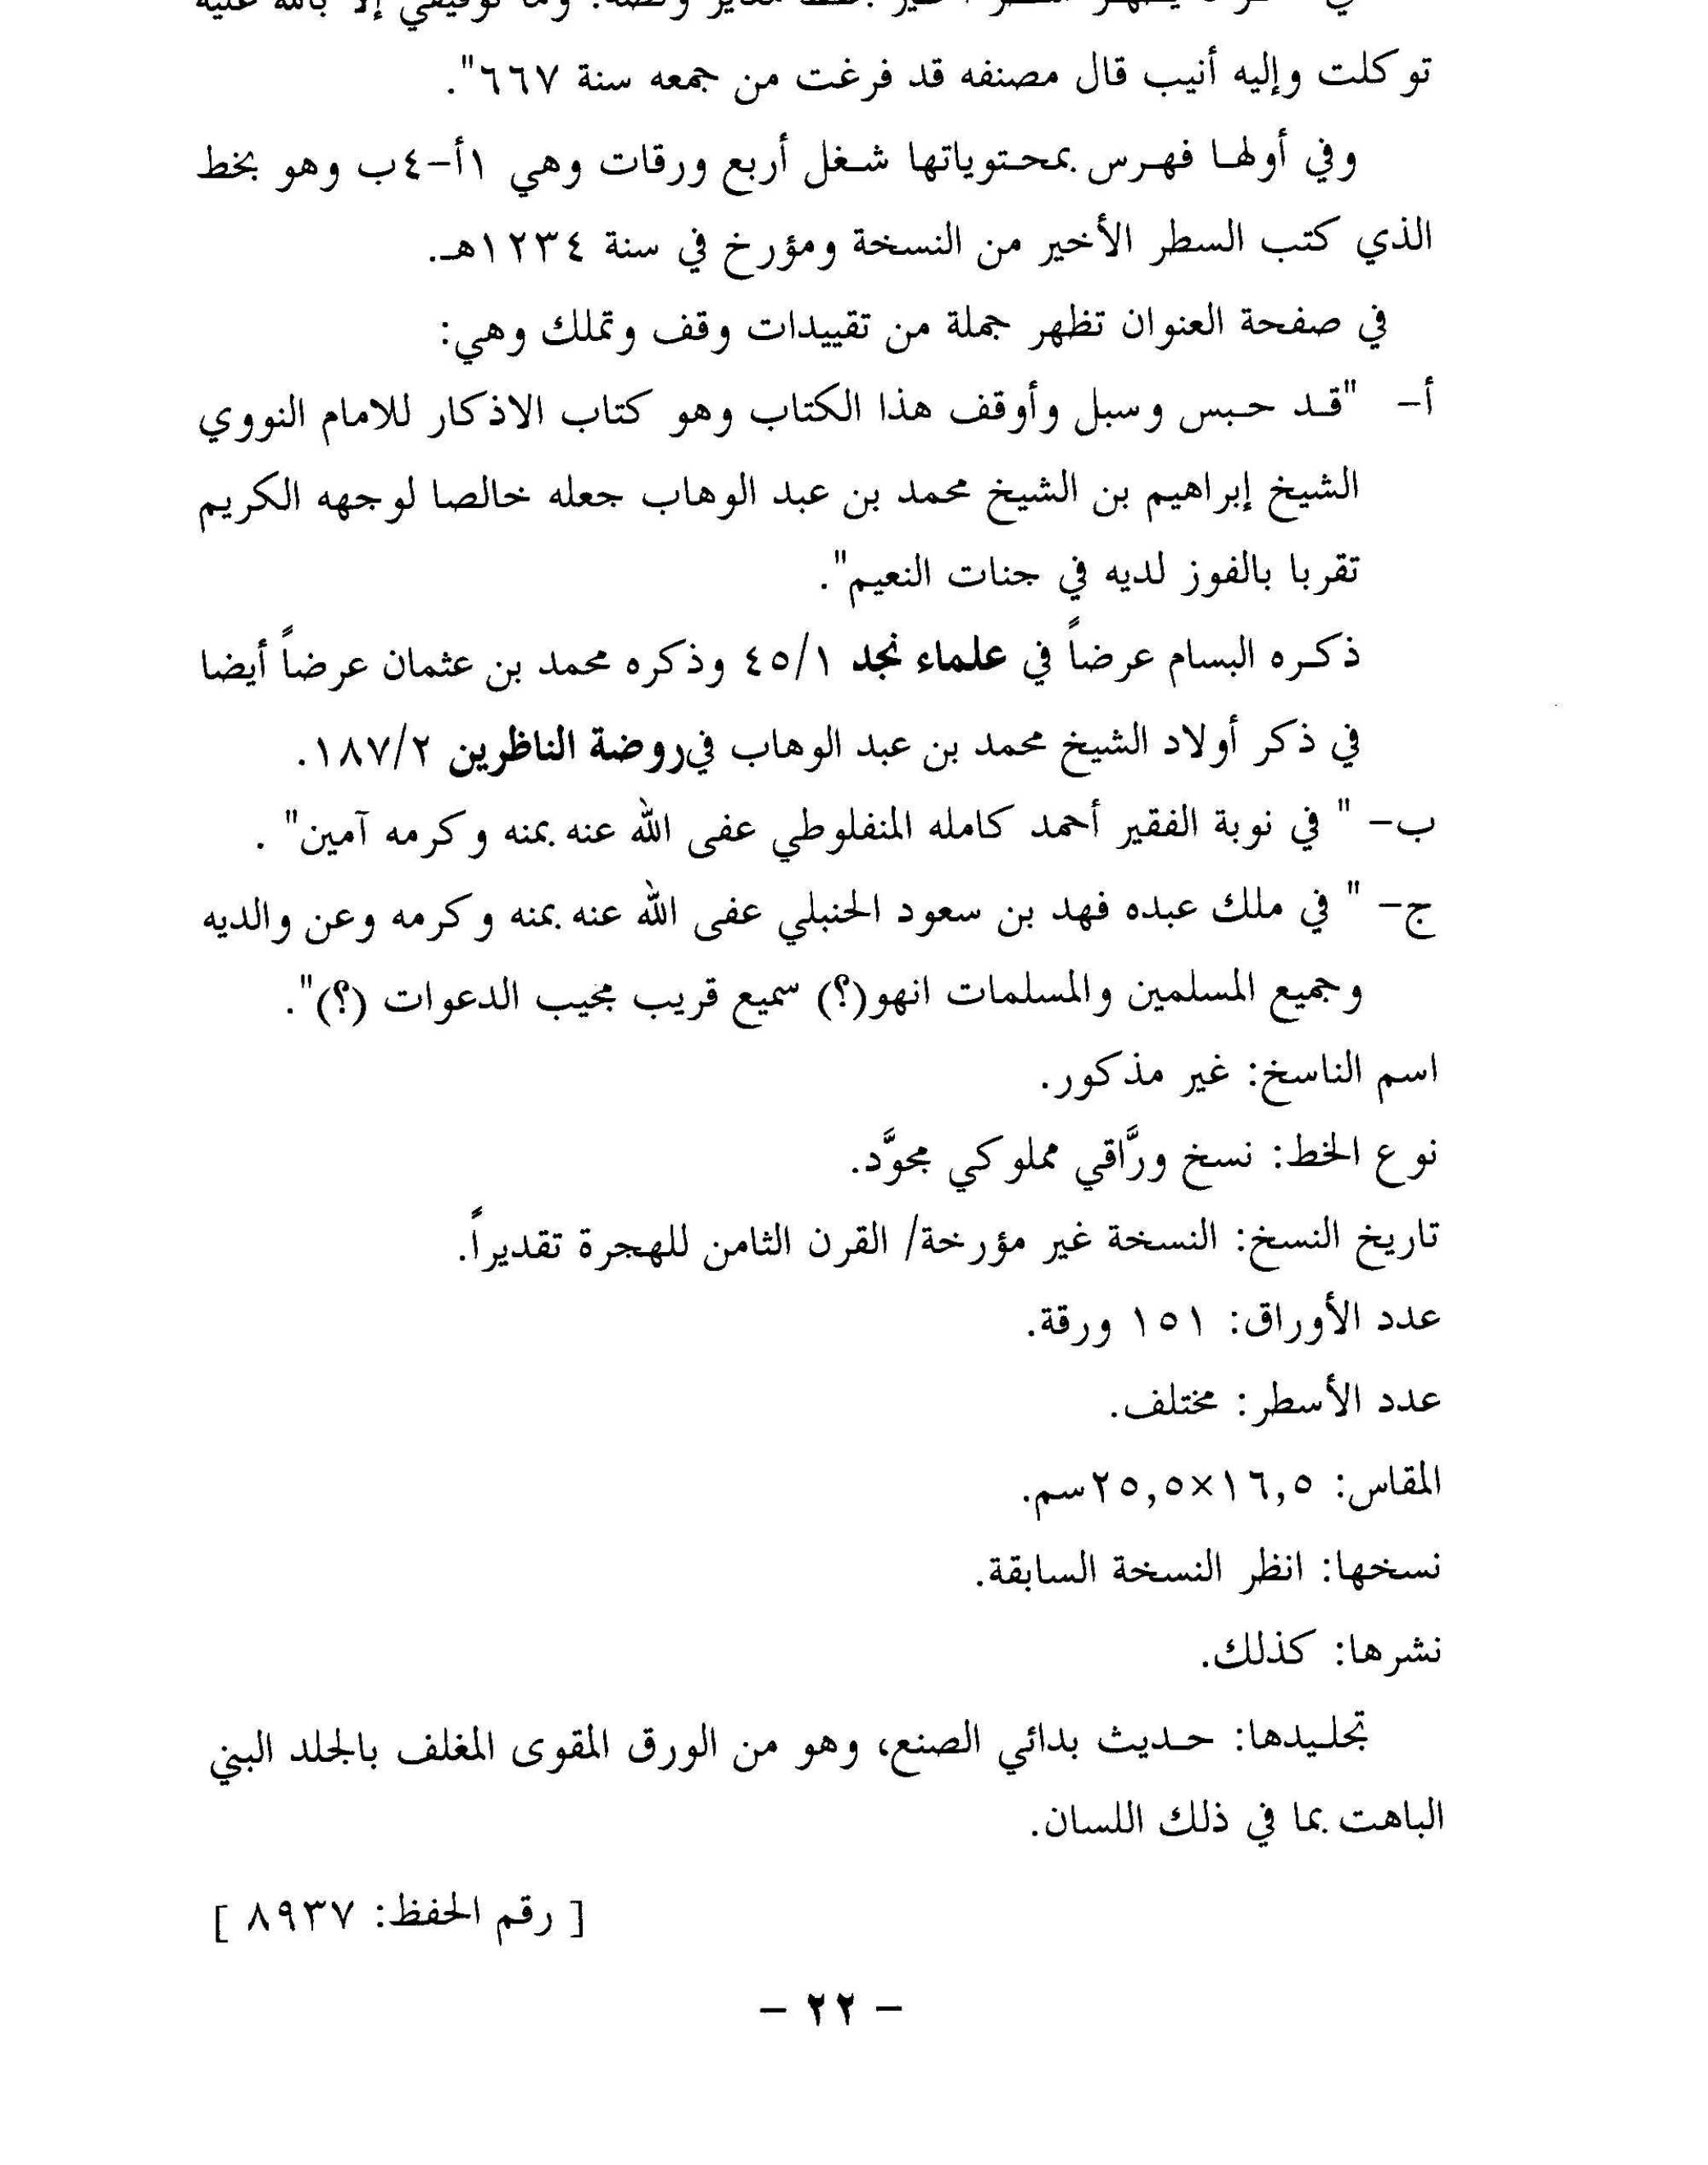 وما توفيقي إلا بالله عليه
توكلت وإليه أنيب قال مصنفه قد فرغت من جمعه سنة ٦٦٧".
وفي أولها فهرس بمحتوياتها شغل أربع ورقات وهي ١أ-٤ب وهو بخط
الذي كتب السطر الأخير من النسخة ومؤرخ في سنة ١٢٣٤هـ.
في صفحة العنوان تظهر جملة من تقييدات وقف وتملك وهي:
أ- "قد حبس وسبل وأوقف هذا الكتاب وهو كتاب الاذكار للامام النووي
الشيخ إبراهيم بن الشيخ محمد بن عبد الوهاب جعله خالصا لوجهه الكريم
تقربا بالفوز لديه في جنات النعيم".
ذكره البسام عرضاً في علماء نجد ٤٥/١ وذكره محمد بن عثمان عرضاً أيضا
في ذكر أولاد الشيخ محمد بن عبد الوهاب في روضة الناظرين ١٨٧/٢.
ب- " في نوبة الفقير أحمد كامله المنفلوطي عفى الله عنه بمنه وكرمه آمين" .
ج- " في ملك عبده فهد بن سعود الحنبلي عفى الله عنه بمنه وكرمه وعن والديه
وجميع المسلمين والمسلمات انهو(؟) سميع قريب مجيب الدعوات (؟)".
اسم الناسخ: غير مذكور.
نوع الخط: نسخ ورَّاقي مملوكي مجوَّد.
تاريخ النسخ: النسخة غير مؤرخة/ القرن الثامن للهجرة تقديراً.
عدد الأوراق: ١٥١ ورقة.
عدد الأسطر: مختلف.
المقاس: ١٦,٥×٢٥,٥سم.
نسخها: انظر النسخة السابقة.
نشرها: كذلك.
تجليدها: حديث بدائي الصنع، وهو من الورق المقوى المغلف بالجلد البني
الباهت بما في ذلك اللسان.
[ رقم الحفظ: ٨٩٣٧ ]
- ٢٢ -